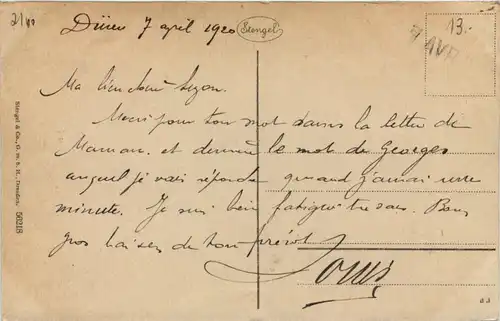 21/40
Düren 7 april 1920
Stengel
13.-
7 AVR
Ma bien chère Suzon.
Merci pour ton mot dans la lettre de
Maman. et derrière le mot de Georges
auquel je vais répondre quand j'aurai une
minute. Je suis bien fatigué tu sais. Bons
gros baisers de ton frérot
Louis
Stengel & Co., G. m. b. H., Dresden. 50218